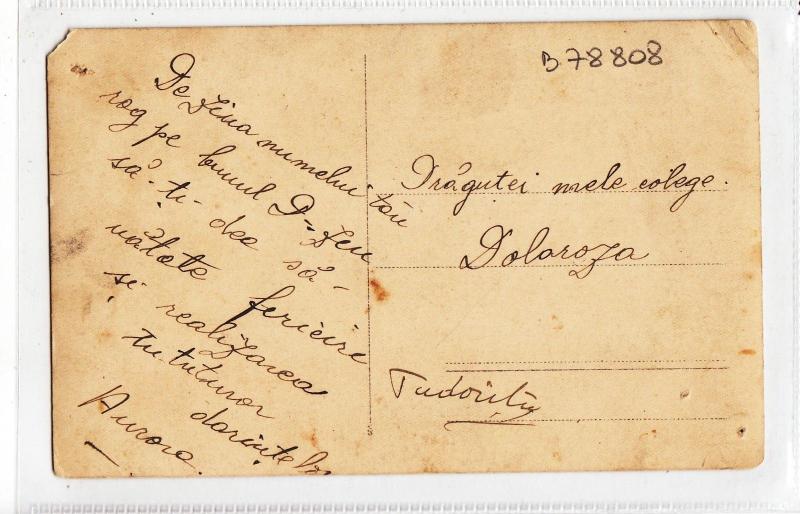 De ziua numelui tău
rog pe bunul D-zeu
să-ți dea să-
nătate fericire
și realizarea
tututuror
dorințelor
Aurora.
B 78808
Drăguței mele colege.
Dolaroza
Tudorița